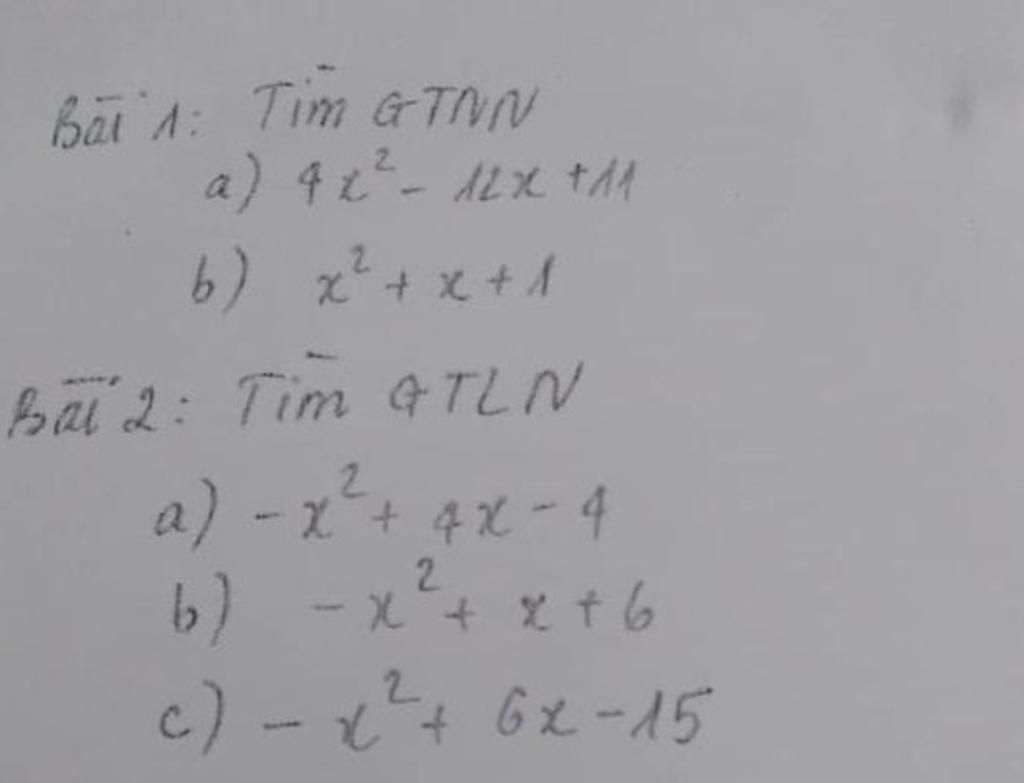 Bài 1: Tìm GTNN
a) 4x² - 12x + 11
b) x² + x + 1
Bài 2: Tìm GTLN
a) -x² + 4x - 4
b) -x² + x + 6
c) -x² + 6x - 15